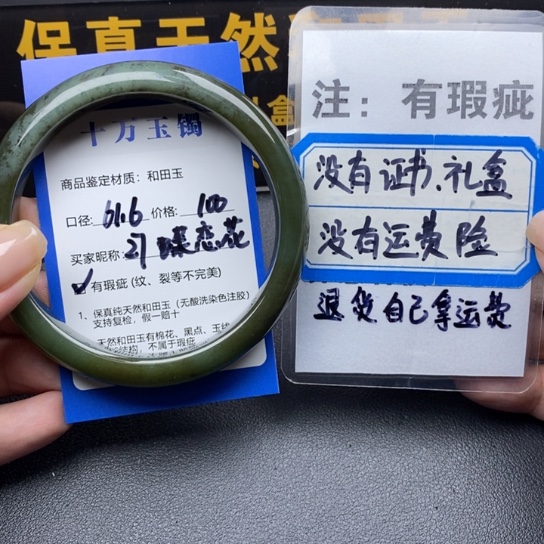 保真天然
十万玉镯
商品鉴定材质：和田玉
口径：61.6 价格：100
买家昵称：21 蝶恋花
✓有瑕疵(纹、裂等不完美)
1、保真纯天然和田玉（无酸洗染色注胶）
支持复检，假一赔十
天然和田玉有棉花、黑点、玉线
结构，不属于瑕疵
注：有瑕疵
没有证书、礼盒
没有运费险
退货自己拿运费